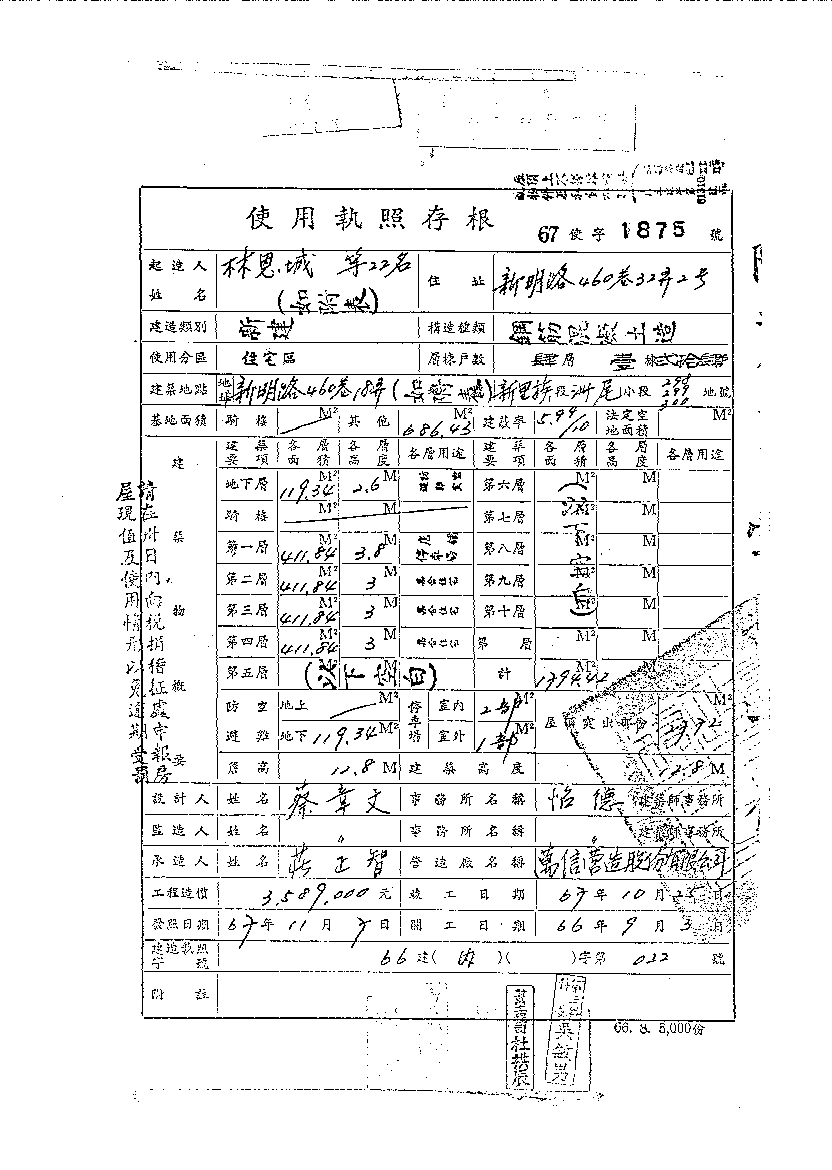 使用執照存根
67 使字 1875 號
起造人姓名 林恩城 等22名 (如附表) 住址 新明路460巷32弄2號
建造類別 新建 構造種類 鋼筋混凝土造
使用分區 住宅區 層棟戶數 肆層 壹棟貳拾肆戶
建築地點 地址 新明路460巷18弄 新里族段洲尾小段 299 300 地號
基地面積 騎樓 M² 其他 686.43 M² 建蔽率 5.99/10 法定空地面積 M²
建築物概要
建築要項 各層面積 各層高度 各層用途 建築要項 各層面積 各層高度 各層用途
地下層 119.34 M² 2.6 M 第六層 M² M
騎樓 M² M 第七層 M² M
第一層 411.84 M² 3.8 M 第八層 M² M
第二層 411.84 M² 3 M 第九層 M² M
第三層 411.84 M² 3 M 第十層 M² M
第四層 411.84 M² 3 M 第 層 M² M
第五層 (以下空白) 計 1794.42 M²
(以下空白)
防空避難 地上 M² 地下 119.34 M² 停車場 室內 2部 M² 室外 1部 M² 屋頂突出部份 M²
簷高 12.8 M 建築高度 12.8 M
設計人 姓名 蔡章文 事務所名稱 怡德 建築師事務所
監造人 姓名 〃 事務所名稱 〃 建築師事務所
承造人 姓名 莊正智 營造廠名稱 萬信營造股份有限公司
工程造價 3,589,000元 竣工日期 67年10月25日
發照日期 67年11月7日 開工日期 66年9月3日
建造執照字號 66建( )( )字第022號
附註
請在卅日內向稅捐稽征處市報房
屋現值及使用情形以免逾期受罰
吳敏男
66. 8. 5,000份